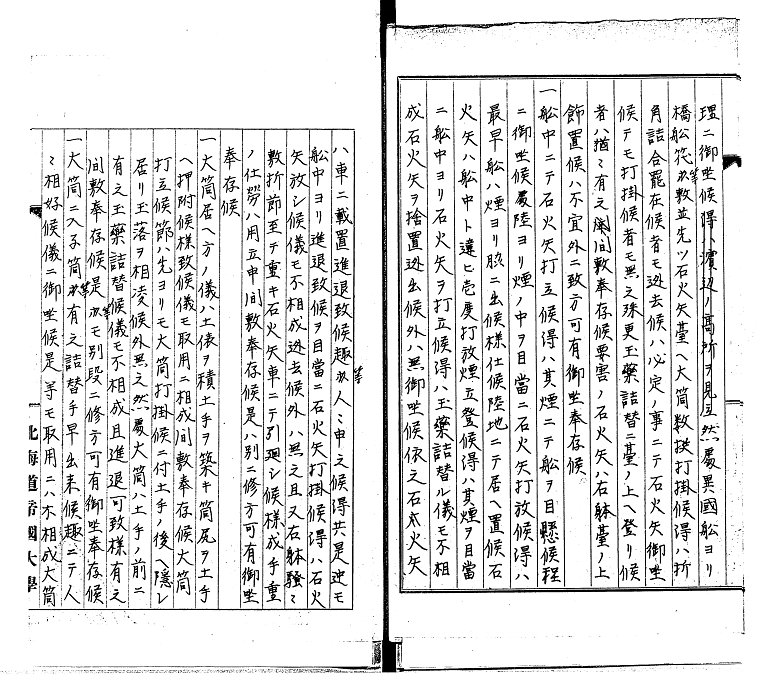 理ニ御坐候得ハ濱辺ノ高所ヲ見立然処異國舩ヨリ
橋舩筏等数並先ツ石火矢臺ヘ大筒数挺打掛候得ハ折
角詰合罷在候者モ迯去候ハ必定ノ事ニテ石火矢御坐
候テモ打掛候者モ無之殊更玉藥詰替ニ臺ノ上ヘ登リ候
者ハ猶ニ有之間敷奉存候要害ノ石火矢ハ右躰臺ノ上
飾置候ハ不宜外ニ致方可有御坐奉存候
一舩中ニテ石火矢打立候得ハ其煙ニテ舩ヲ目懸候程
ニ御坐候處陸ヨリ煙ノ中ヲ目當ニ石火矢打放候得ハ
最早舩ハ煙ヨリ脇ニ出候様仕候陸地ニテ居ヘ置候石
火矢ハ舩中ト違ヒ壱度打放煙立登候得ハ其煙ヲ目當
ニ舩中ヨリ石火矢ヲ打立候得ハ玉藥詰替ル儀モ不相
成石火矢ヲ捨置迯出候外ハ無御坐候依之石火矢
ハ車ニ載置進退致候趣等人ニ申之候得共是迚モ
舩中ヨリ進退致候ヲ目當ニ石火矢打掛候得ハ石火
矢放シ候儀モ不相成迯去候外ハ無之且又右躰騒ニ
敷折節至テ重キ石火矢車ニテ引廻シ候様成手重
ノ仕勞ハ用立申間敷奉存候是ハ別ニ修方可有御坐
奉存候
一大筒居ヘ方ノ儀ハ土俵ヲ積土手ヲ築キ筒尻ヲ土手
ヘ押附候様致候儀モ取用ニ相成間敷奉存候大筒
打立候節ハ先ヨリモ大筒打掛候ニ付土手ノ後ヘ隠レ
居リ玉落ヲ相凌候外無之然處大筒ハ土手ノ前ニ
有之玉藥詰替候儀モ不相成且進退可致様有之
間敷奉存候是等モ別段ニ修方可有御坐奉存候
一大筒ニ入子筒等有之詰替手早出来候趣ニテ人
ニ相好候儀ニ御坐候是等モ取用ニハ不相成大筒
北海道帝國大學